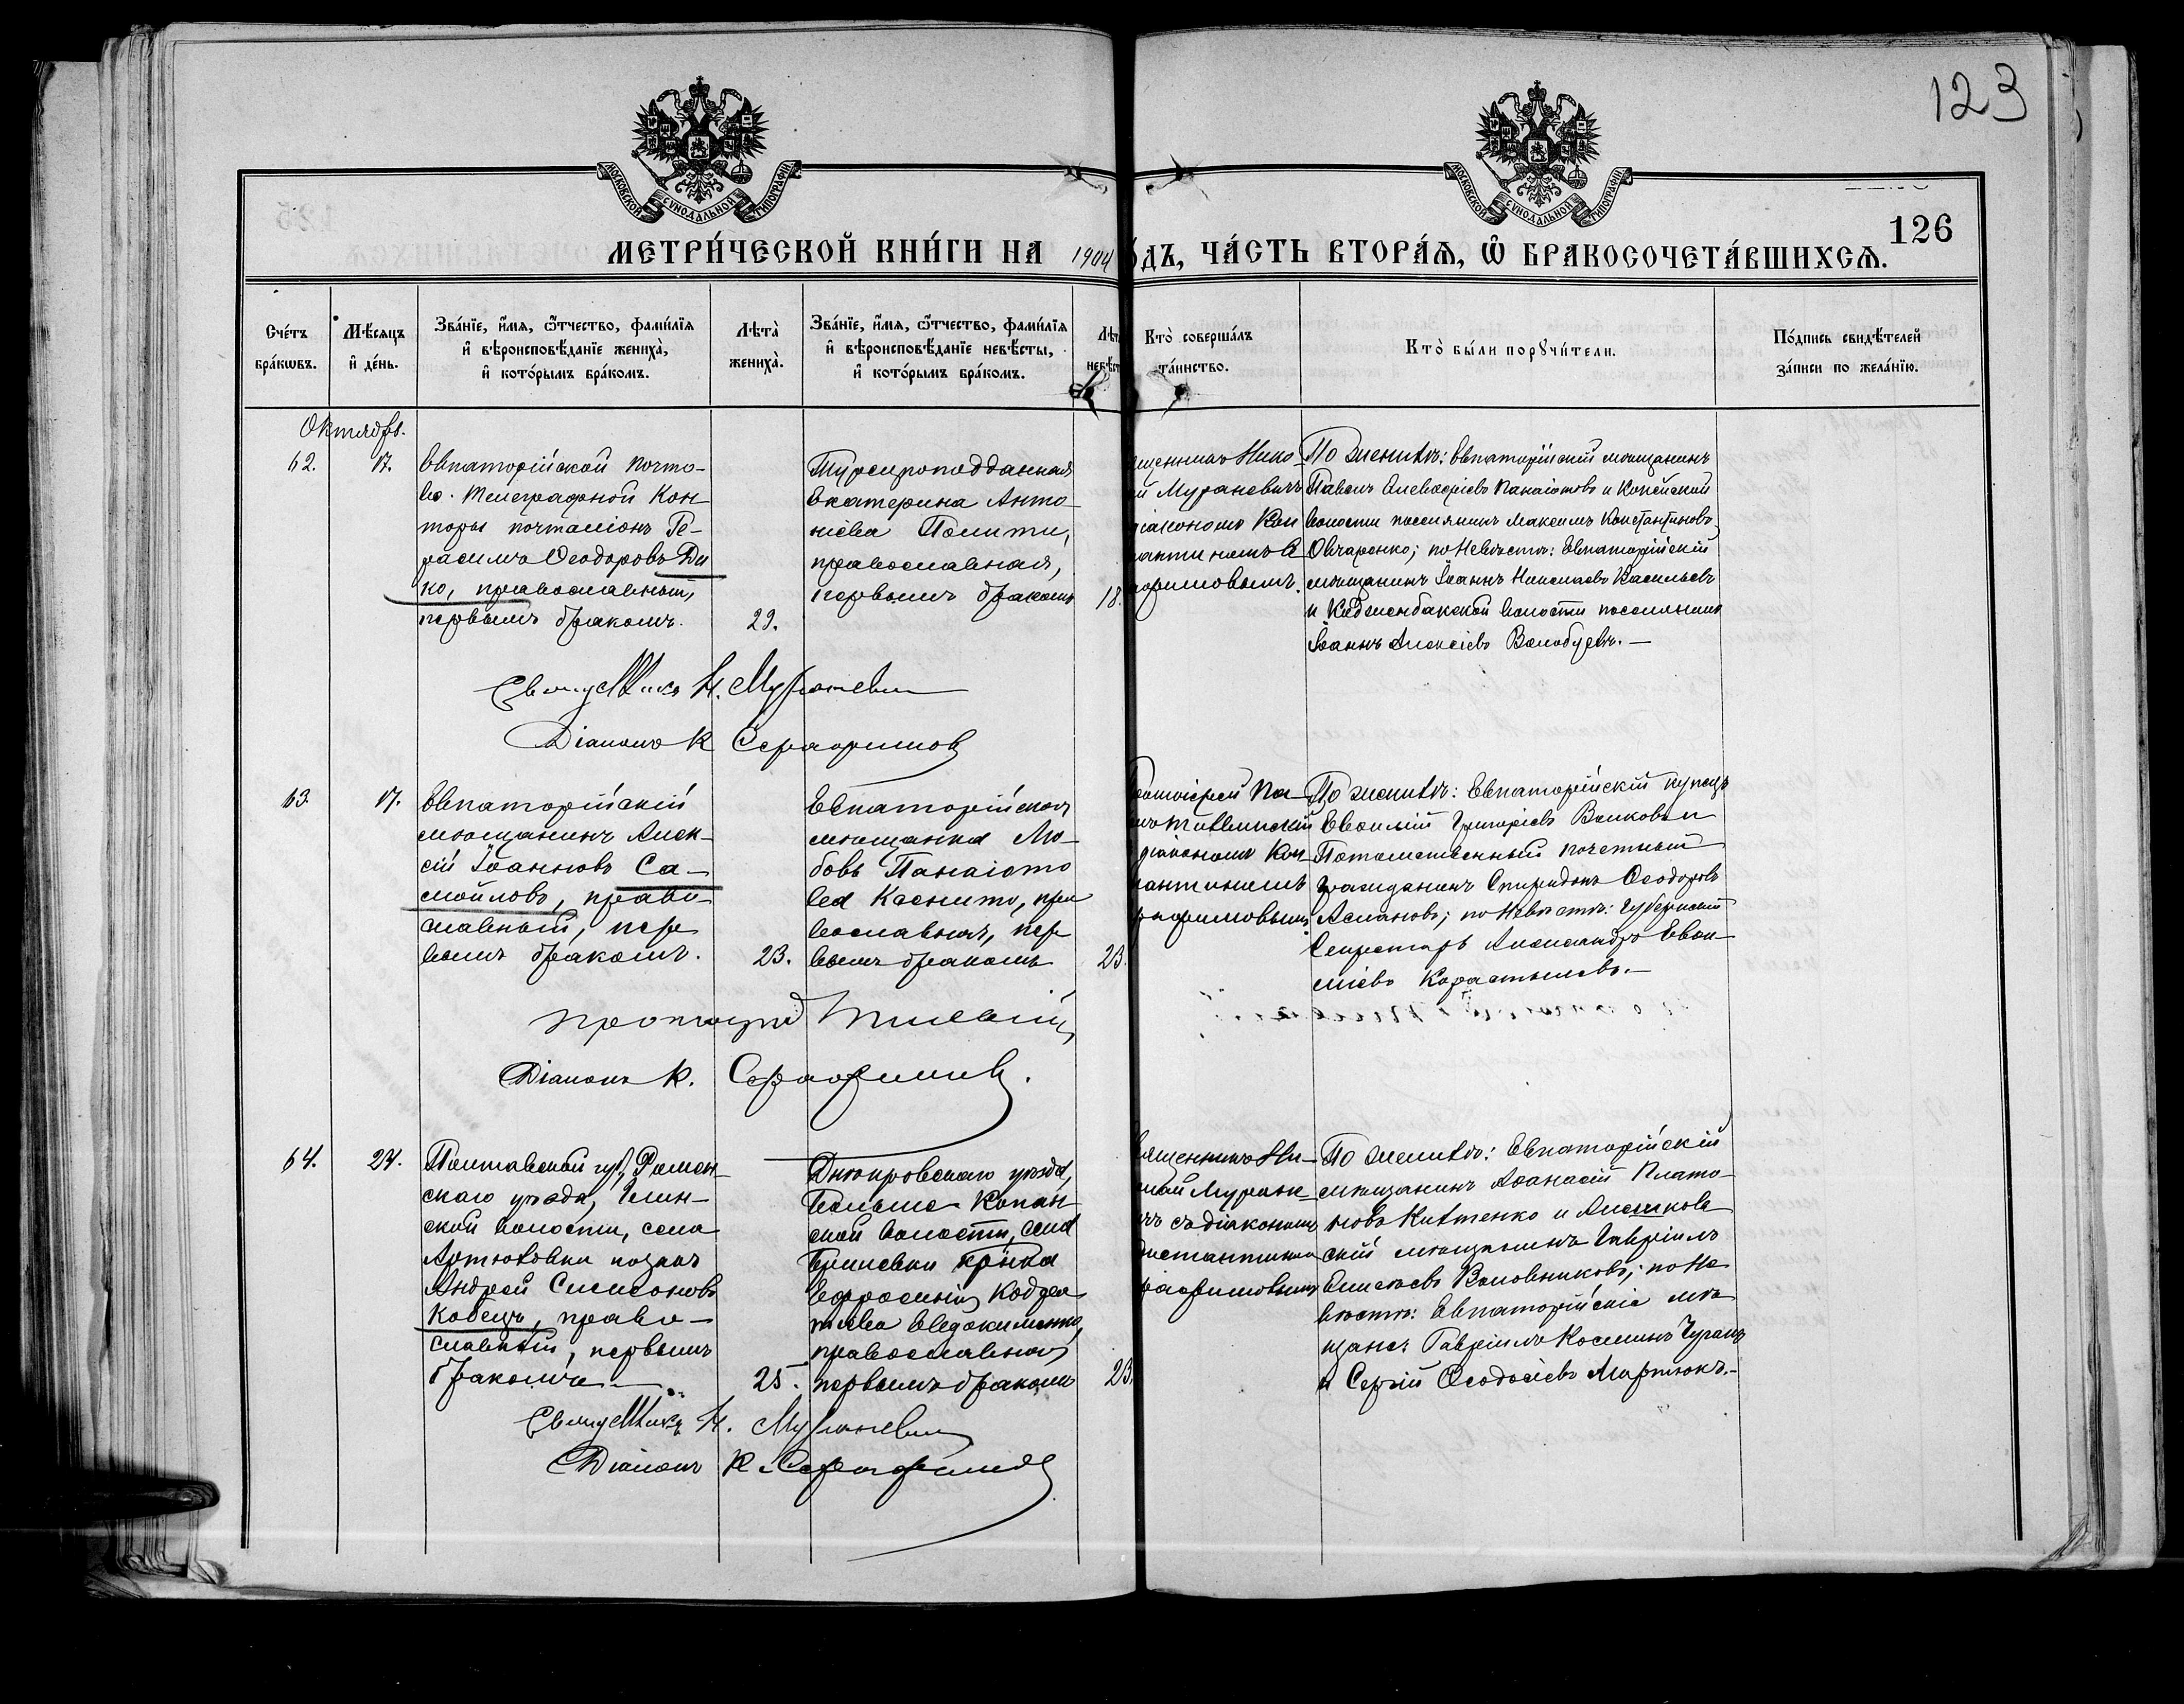 123
МОСКОВСКОЙ СУНОДАЛЬНОЙ ТИПОГРАФІИ
МОСКОВСКОЙ СУНОДАЛЬНОЙ ТИПОГРАФІИ
126
МЕТРИ́ЧЕСКОЙ КНИ́ГИ НА 1904
ДЪ, ЧА́СТЬ ВТОРА́Ѧ, Ѽ БРАКОСОЧЕТА́ВШИХСѦ.
Сче́тъ бра́кѡвъ.
Мѣ́сяцъ и҆ де́нь.
Зва́нїе, и҆́мя, ѻ҆́тчество, фами́лїя
и҆ вѣроисповѣ́данїе жениха̀,
и҆ кото́рымъ бра́комъ.
Лѣта̀ жениха̀.
Зва́нїе, и҆́мя, ѻ҆́тчество, фами́лїя
и҆ вѣроисповѣ́данїе невѣ́сты,
и҆ кото́рымъ бра́комъ.
Лѣт
невѣст
Кто̀ соверша́лъ
та́инство.
Кто̀ бы́ли порꙋчи́тели.
По́дпись свидѣ́телей
за́писи по жела́нїю.
Октябрь.
62.
17.
Евпаторійской почто-
во-телеграфной Кон-
торы почталіонъ Ге-
расимъ Ѳеодоровъ Ди
ко, православный,
первымъ бракомъ.
29.
Турецкоподданная
Екатерина Анто-
ніева Полити,
православная,
первымъ бракомъ
18.
щенникъ Нико-
й Мураневичъ
діакономъ Кон
антиномъ Се
афимовымъ.
По женихѣ: Евпаторійскій мѣщанинъ
Павелъ Панаіотовъ и
волости поселянинъ Максимъ Константиновъ
Овчаренко; по невѣстѣ: Евпаторійскій
мѣщанинъ Іоаннъ Николаевъ Васильевъ
и волости поселянинъ
Іоаннъ Алексіевъ Волобуевъ.—
Священникъ Н. Мураневич
Діаконъ К Серафимовъ
63.
17.
Евпаторійскій
мѣщанинъ Алек-
сій Іоанновъ Са-
мойловъ, право-
славный, пер
вымъ бракомъ.
23.
Евпаторійская
мѣщанка Лю-
бовь Панаіото
ва пра
вославная, пер
вымъ бракомъ
23.
ротоіерей Па-
діакономъ Кон-
антиномъ
рафимовымъ
По женихѣ: Евпаторійскій купецъ
Григоріевъ Волковъ и
Потомственный почетный
гражданинъ Спиридонъ Ѳеодоровъ
Аслановъ; по невѣстѣ: Губернскій
Секретарь Александръ
міевъ
протоіерей
Діаконъ К. Серафимовъ.
64.
24.
Полтавской губ., Ромен-
скаго уѣзда,
ской волости, села
Артюховки козакъ
Андрей Симеоновъ
Кобецъ, право-
славный, первымъ
бракомъ.—
25.
Днѣпровскаго уѣзда,
Больше-Копан-
ской волости, села
Бриневки
Евфросинія Кодра
тьева Евдокименко,
православная,
первымъ бракомъ
23.
вященникъ Ни-
лай Муране-
чъ съ діакономъ
онстантиномъ
рафимовымъ
По женихѣ: Евпаторійскій
мѣщанинъ Аѳанасій Плато-
новъ и Алешков-
скій мѣщанинъ Гавріилъ
Алексѣевъ по не
вѣстѣ: Евпаторійскіе мѣ
щане: Гавріилъ Косминъ
и Сергій Ѳеодосіевъ Мартюкъ.—
Священникъ Н. Мураневич
Діаконъ К Серафимовъ